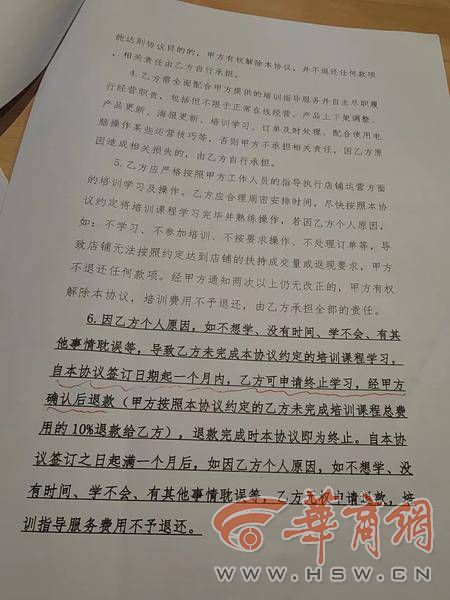 能达到协议目的的，甲方有权解除本协议，并不退还任何款项
，相关责任由乙方自行承担。
4.乙方需全面配合甲方提供的培训指导服务并自主尽职履
行经营职责，包括但不限于正常在线经营、产品上下架调整、
产品更新、海报更新、培训学习、订单及时处理、配合使用电
脑操作某些运营技巧等，否则甲方不承担相关责任，因乙方原
因造成相关损失的，由乙方自行承担。
5.乙方应严格按照甲方工作人员的指导执行店铺运营方面
的培训学习及操作。乙方应合理周密安排时间，尽快按照本协
议约定将培训课程学习完毕并熟练操作，若因乙方个人原因，
如：不学习、不参加培训、不按要求操作、不处理订单等，导
致店铺无法按照约定达到店铺的扶持成交量或返现要求，甲方
不退还任何款项。经甲方通知两次以上仍无改正的，甲方有权
解除本协议，培训费用不予退还，由乙方承担全部的责任。
6.因乙方个人原因，如不想学、没有时间、学不会、有其
他事情耽误等，导致乙方未完成本协议约定的培训课程学习，
自本协议签订日期起一个月内，乙方可申请终止学习，经甲方
确认后退款（甲方按照本协议约定的乙方未完成培训课程总费
用的10%退款给乙方），退款完成时本协议即为终止。自本协
议签订之日起满一个月后，如因乙方个人原因，如不想学、没
有时间、学不会、有其他事情耽误等，乙方无权申请退款，培
训指导服务费用不予退还。
華商網
WWW.HSW.CN